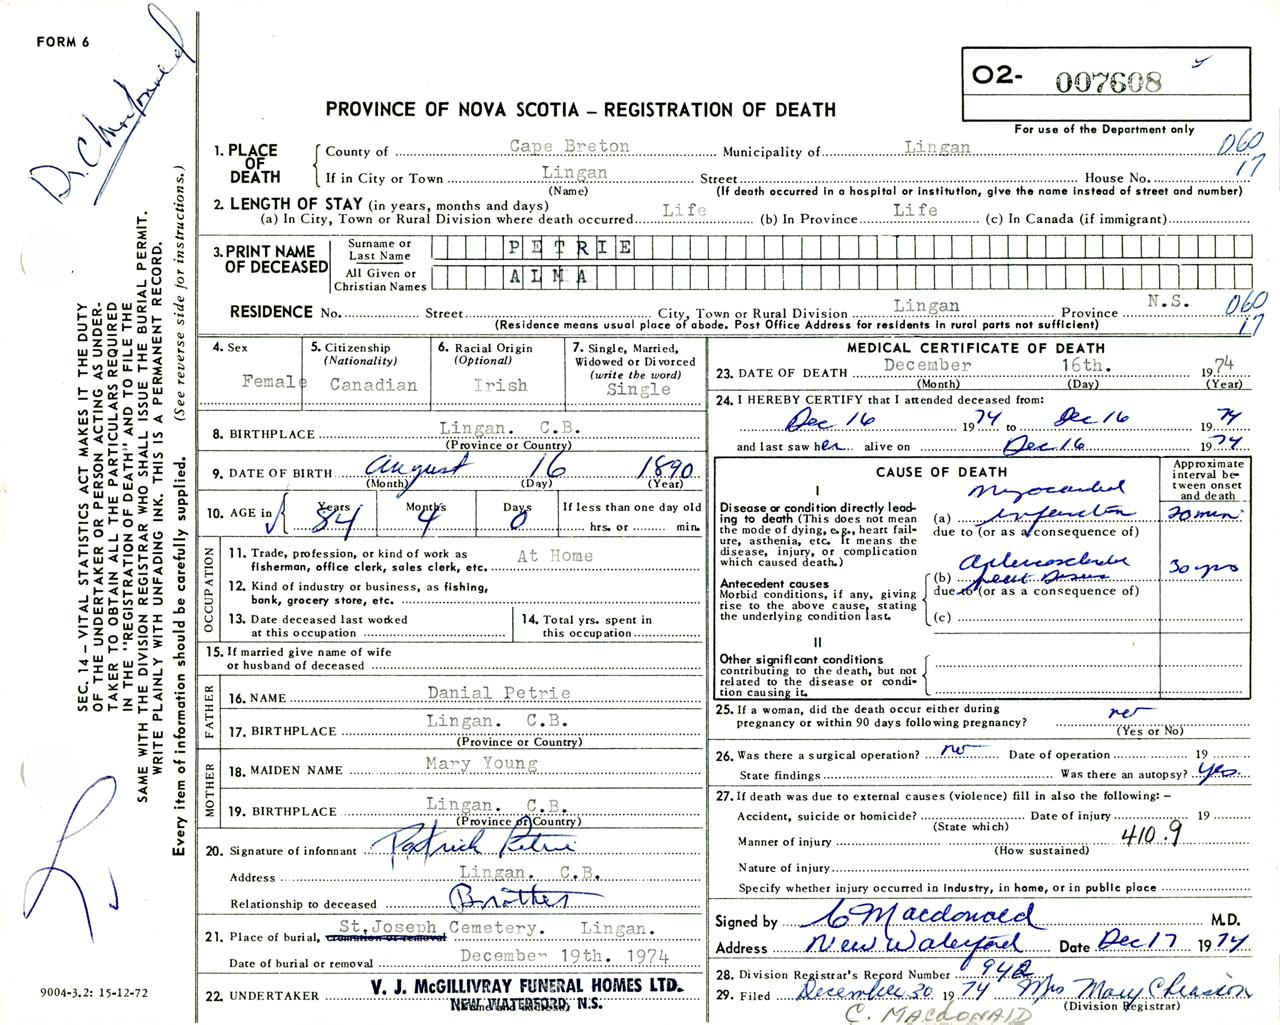 FORM 6
Dr. C Macdonald
O2- 007608
For use of the Department only
PROVINCE OF NOVA SCOTIA – REGISTRATION OF DEATH
060
17
1. PLACE OF DEATH
County of Cape Breton Municipality of Lingan
If in City or Town Lingan Street House No.
(Name) (If death occurred in a hospital or institution, give the name instead of street and number)
2. LENGTH OF STAY (in years, months and days)
(a) In City, Town or Rural Division where death occurred Life (b) In Province Life (c) In Canada (if immigrant)
3. PRINT NAME OF DECEASED
Surname or Last Name PETRIE
All Given or Christian Names ALMA
RESIDENCE No. Street City, Town or Rural Division Lingan Province N.S.
(Residence means usual place of abode. Post Office Address for residents in rural parts not sufficient)
060
17
4. Sex Female
5. Citizenship (Nationality) Canadian
6. Racial Origin (Optional) Irish
7. Single, Married, Widowed or Divorced (write the word) Single
8. BIRTHPLACE Lingan. C.B.
(Province or Country)
9. DATE OF BIRTH August 16 1890
(Month) (Day) (Year)
10. AGE in Years 84 Months 4 Days 0 If less than one day old
hrs. or min.
OCCUPATION
11. Trade, profession, or kind of work as fisherman, office clerk, sales clerk, etc. At Home
12. Kind of industry or business, as fishing, bank, grocery store, etc.
13. Date deceased last worked at this occupation
14. Total yrs. spent in this occupation
15. If married give name of wife or husband of deceased
FATHER
16. NAME Danial Petrie
17. BIRTHPLACE Lingan. C.B.
(Province or Country)
MOTHER
18. MAIDEN NAME Mary Young
19. BIRTHPLACE Lingan. C.B.
(Province or Country)
20. Signature of informant Patrick Petrie
Address Lingan. C.B.
Relationship to deceased Brother
21. Place of burial, cremation or removal St.Joseph Cemetery. Lingan.
Date of burial or removal December 19th. 1974
22. UNDERTAKER V. J. McGILLIVRAY FUNERAL HOMES LTD.
NEW WATERFORD, N.S.
(Name and address)
MEDICAL CERTIFICATE OF DEATH
23. DATE OF DEATH December 16th. 1974
(Month) (Day) (Year)
24. I HEREBY CERTIFY that I attended deceased from:
Dec 16 1974 to Dec 16 1974
and last saw her alive on Dec 16 1974
CAUSE OF DEATH
Approximate interval between onset and death
I
Disease or condition directly leading to death (This does not mean the mode of dying, e.g., heart failure, asthenia, etc. It means the disease, injury, or complication which caused death.)
(a) Myocardial infarction 20 min.
due to (or as a consequence of)
Antecedent causes
Morbid conditions, if any, giving rise to the above cause, stating the underlying condition last.
(b) heart Disease 30 yrs
due to (or as a consequence of)
(c)
II
Other significant conditions contributing to the death, but not related to the disease or condition causing it.
25. If a woman, did the death occur either during pregnancy or within 90 days following pregnancy? no
(Yes or No)
26. Was there a surgical operation? no Date of operation 19
State findings Was there an autopsy? yes
27. If death was due to external causes (violence) fill in also the following: –
Accident, suicide or homicide? Date of injury 19
(State which)
Manner of injury 410.9
(How sustained)
Nature of injury
Specify whether injury occurred in industry, in home, or in public place
Signed by C Macdonald M.D.
Address New Waterford Date Dec 17 1974
28. Division Registrar's Record Number 942
29. Filed December 30 1974 Mrs Mary Chiasson
(Division Registrar)
C. MACDONALD
SEC. 14 – VITAL STATISTICS ACT MAKES IT THE DUTY
OF THE UNDERTAKER OR PERSON ACTING AS UNDER-
TAKER TO OBTAIN ALL THE PARTICULARS REQUIRED
IN THE "REGISTRATION OF DEATH" AND TO FILE THE
SAME WITH THE DIVISION REGISTRAR WHO SHALL ISSUE THE BURIAL PERMIT.
WRITE PLAINLY WITH UNFADING INK. THIS IS A PERMANENT RECORD.
Every item of information should be carefully supplied. (See reverse side for instructions.)
9004-3.2: 15-12-72